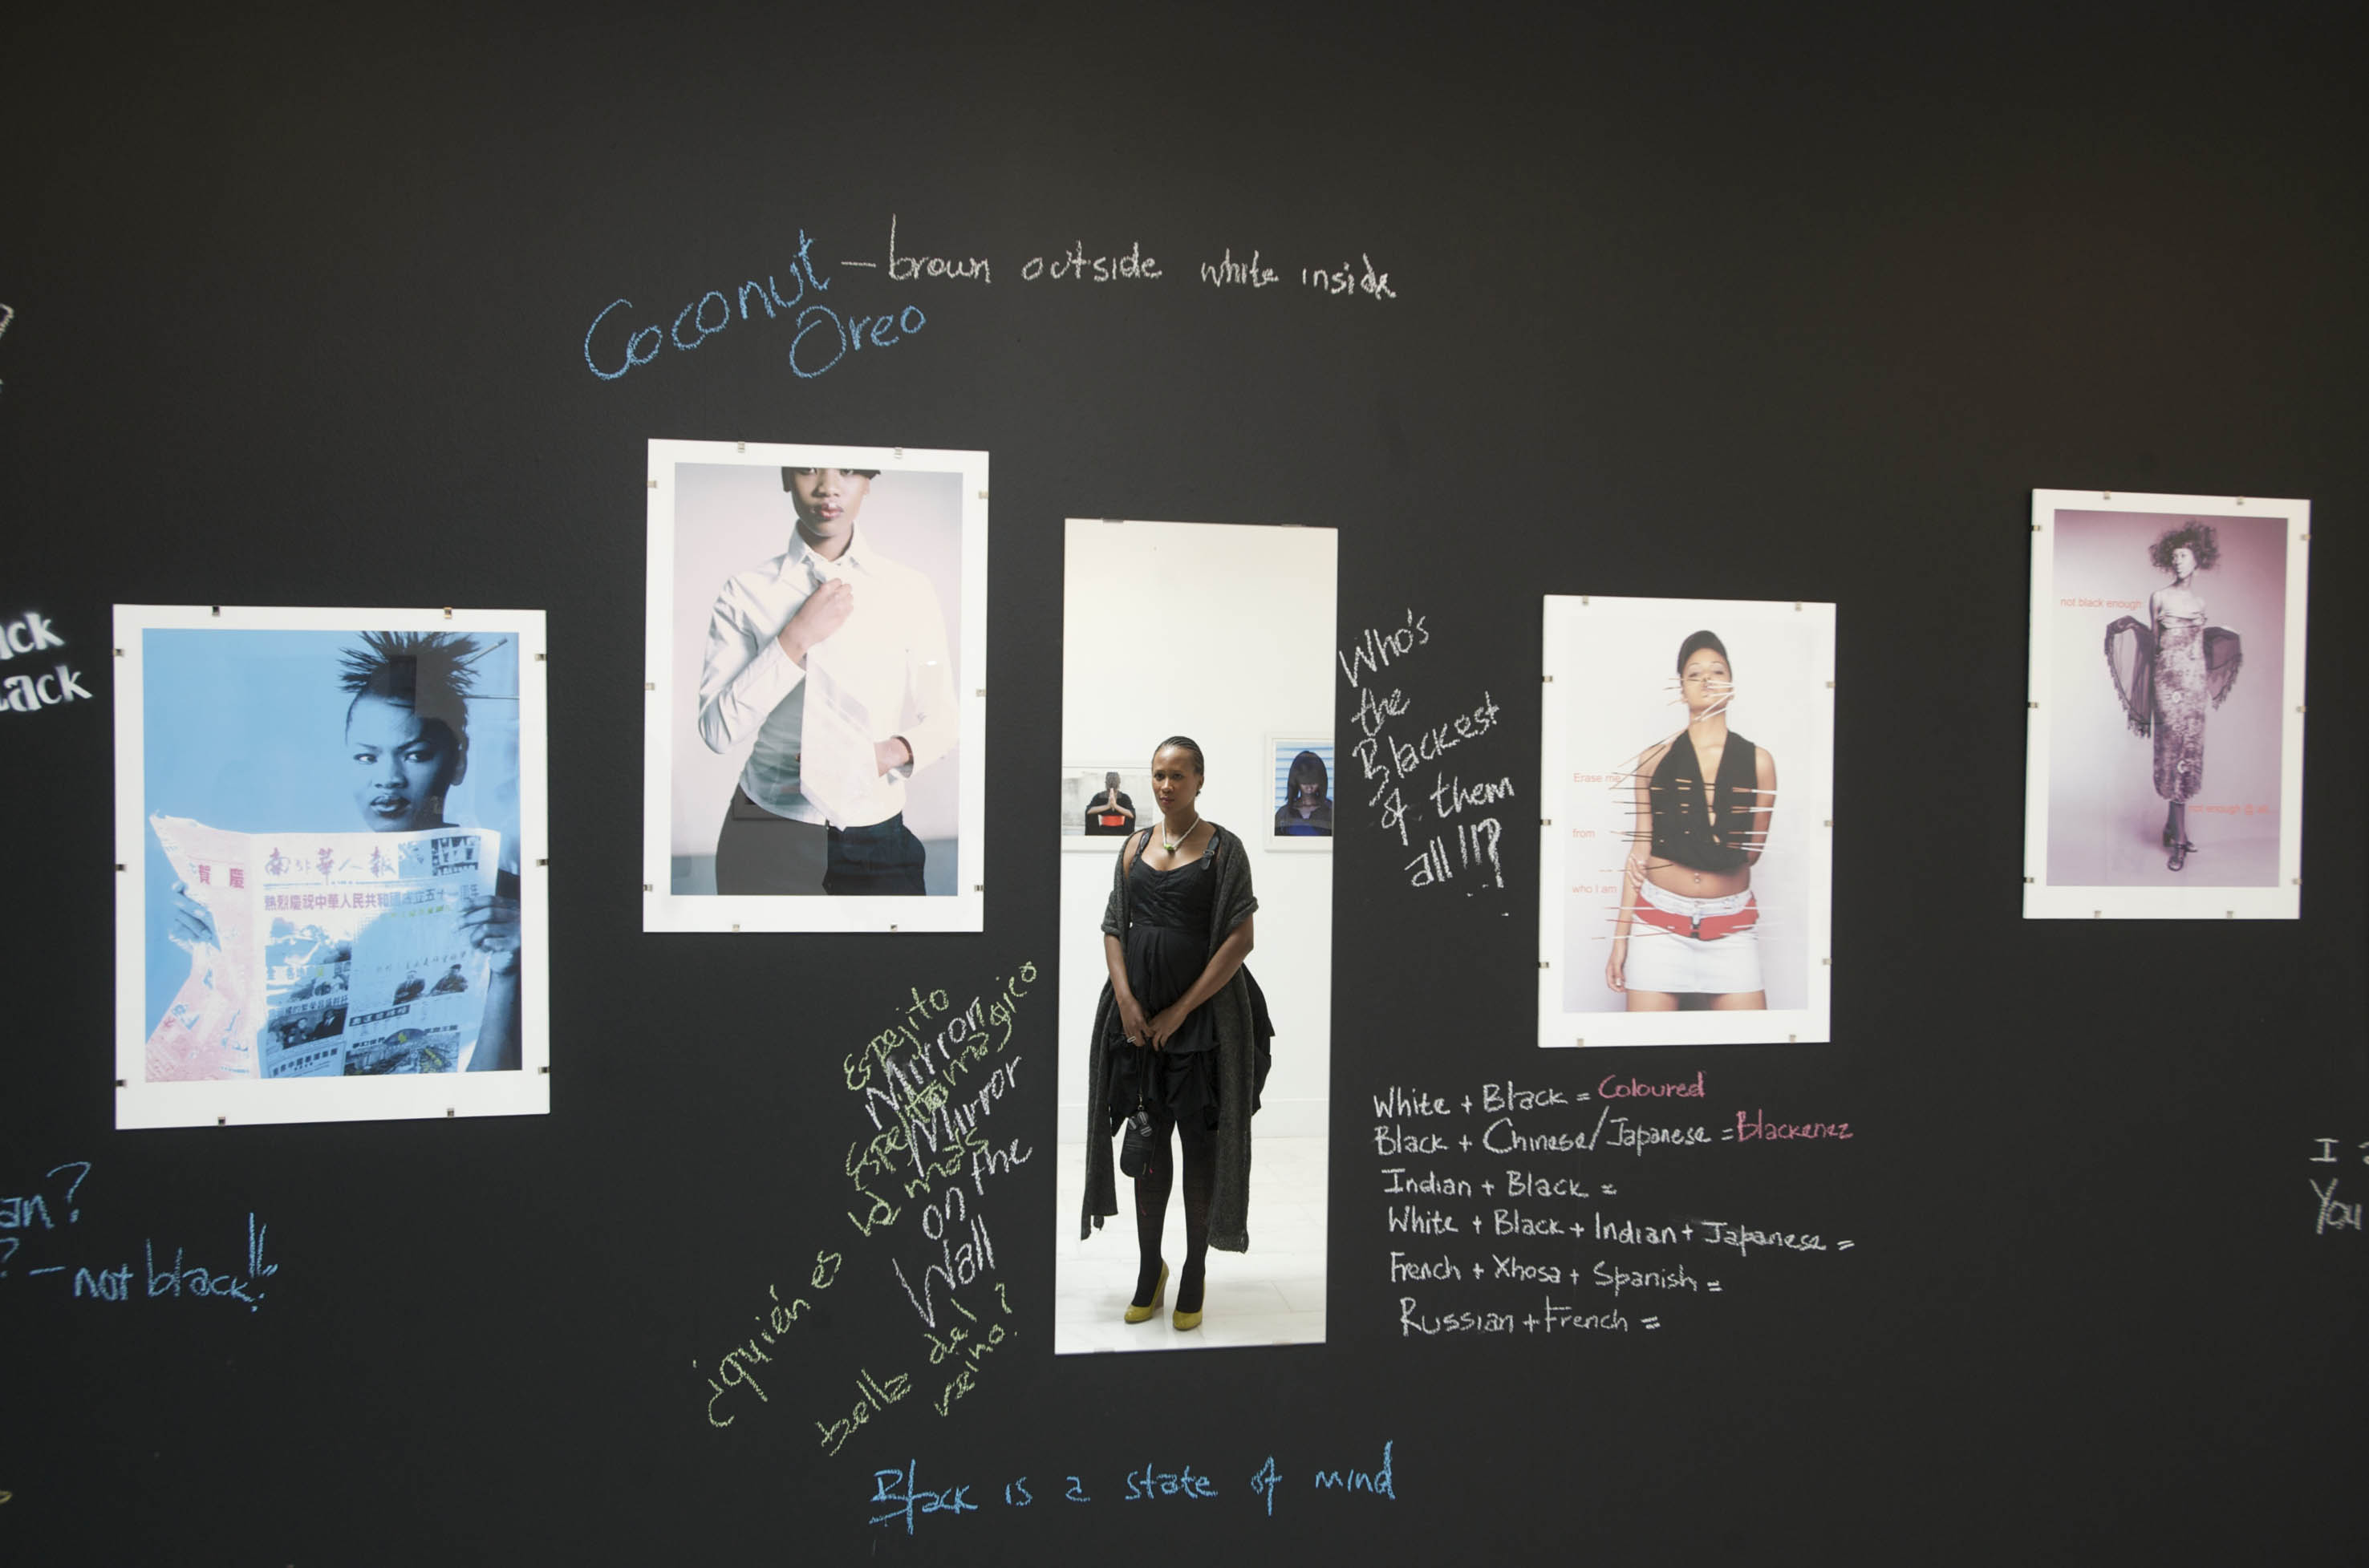 Coconut – brown outside white inside
Oreo
ck
ack
南北華人報
賀慶
熱烈慶祝中華人民共和國成立五十一周年
Who's
the
Blackest
of them
all!!?
not black enough
not enough @ all
Erase me
from
who I am
Espejito
Mirror
Espejito mágico
Mirror
on the
Wall
¿quién es
la más
bella del
reino?
White + Black = Coloured
Black + Chinese/Japanese = Blackenez
Indian + Black =
White + Black + Indian + Japanese =
French + Xhosa + Spanish =
Russian + French =
an?
? – not black!!
I a
You
Black is a state of mind